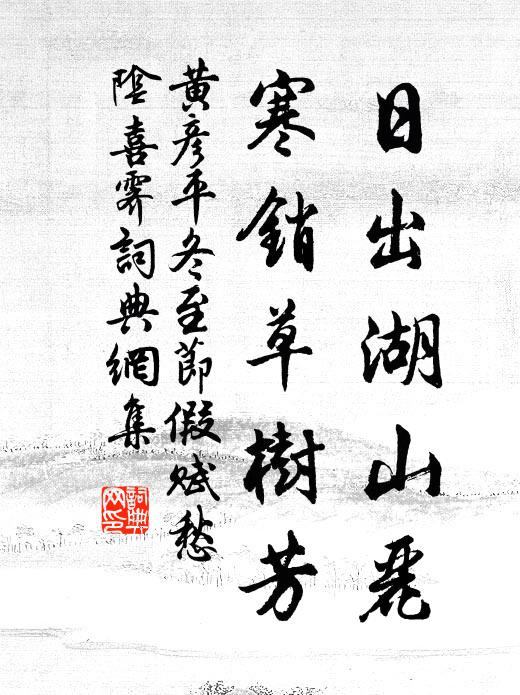 日出湖山麗
寒銷草樹芳
黃彥平冬至節假賦愁
陰喜霽詞典網集
詞典网印